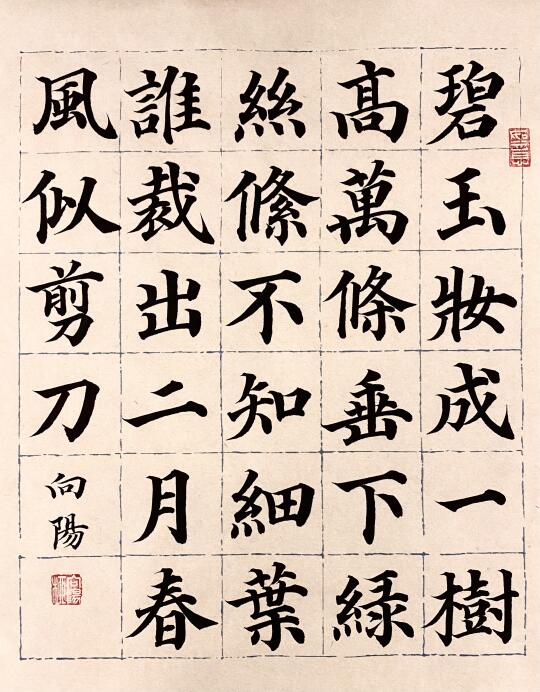 碧玉妝成一樹
高萬條垂下綠
絲絛不知細葉
誰裁出二月春
風似剪刀
向陽